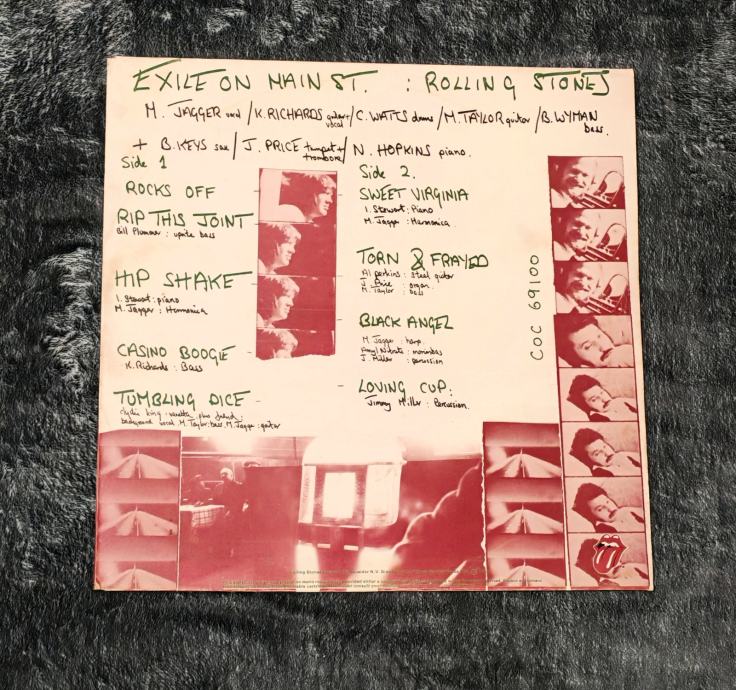 EXILE ON MAIN ST. : ROLLING STONES
M. JAGGER vocal / K. RICHARDS guitar + vocal / C. WATTS drums / M. TAYLOR guitar / B. WYMAN bass.
+ B. KEYS sax / J. PRICE trumpet + trombone / N. HOPKINS piano.
Side 1
ROCKS OFF
RIP THIS JOINT
Bill Plummer : uprite bass
HIP SHAKE
I. Stewart : piano
M. Jagger : Harmonica
CASINO BOOGIE
K. Richards : Bass
TUMBLING DICE
clydie king : vanetta plus friend :
background vocal M. Taylor: bass. M. Jagger : guitar
Side 2.
SWEET VIRGINIA
I. Stewart : Piano
M. Jagger : Harmonica.
TORN & FRAYED
Al perkins : steel guitar
J. Price : organ.
M. Taylor : bass
BLACK ANGEL
M. Jagger : harp.
Amyl Nitrate : marimbas
J. Miller : percussion
LOVING CUP :
Jimmy Miller : Percussion.
COC 69100